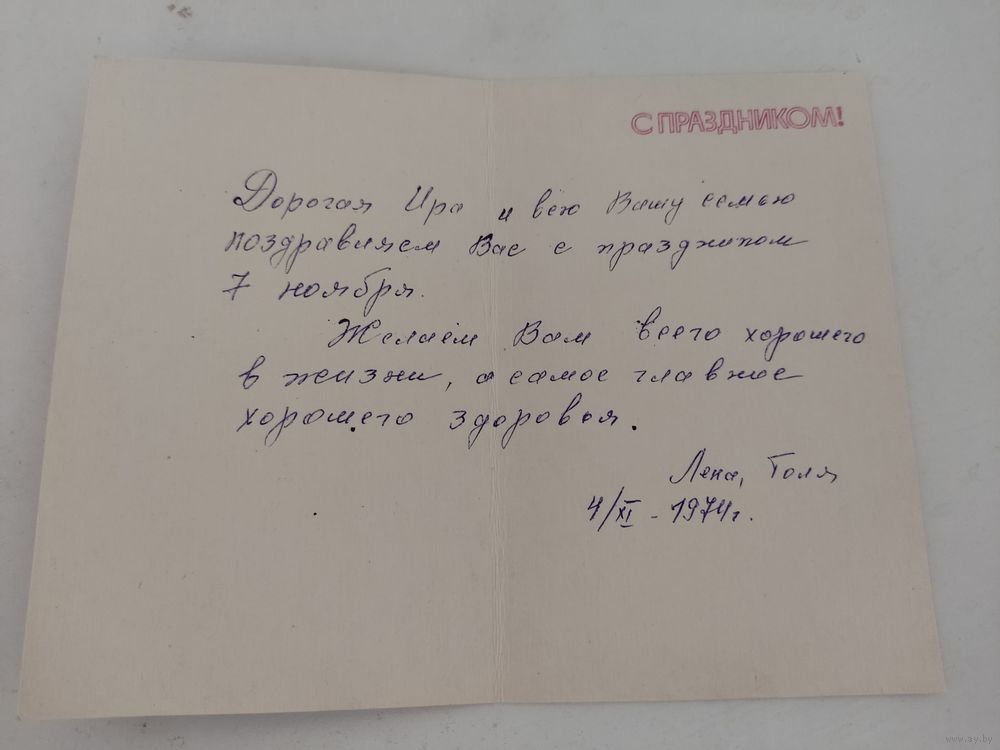 С ПРАЗДНИКОМ!
Дорогая Ира и всю Вашу семью
поздравляем Вас с праздником
7 ноября.
Желаем Вам всего хорошего
в жизни, а самое главное
хорошего здоровья.
Лена, Толя
4/XI - 1974г.
www.ay.by